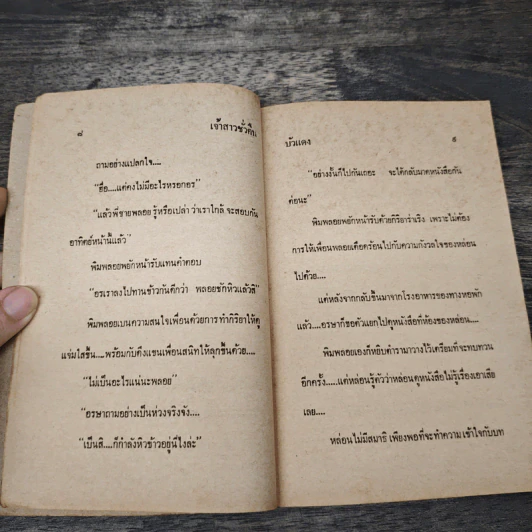 ๘
เจ้าสาวชั่วคืน
ถามอย่างแปลกใจ....
“ฮื่อ....แต่คงไม่มีอะไรหรอกอร”
“แล้วพี่ชายพลอย รู้หรือเปล่า ว่าเราใกล้ จะสอบกัน
อาทิตย์หน้านี้แล้ว”
พิมพลอยพยักหน้ารับแทนคำตอบ
“อรเราลงไปทานข้าวกันดีกว่า พลอยชักหิวแล้วสิ”
พิมพลอยเบนความสนใจเพื่อนด้วยการ ทำกิริยาให้ดู
แจ่มใสขึ้น....พร้อมกับดึงแขนเพื่อนสนิทให้ลุกขึ้นด้วย....
“ไม่เป็นอะไรแน่นะพลอย”
“อรษาถามอย่างเป็นห่วงจริงจัง....
“เป็นสิ....ก็กำลังหิวข้าวอยู่นี่ไงล่ะ”
บัวแดง
๙
“อย่างงั้นก็ไปกันเถอะ จะได้กลับมาดูหนังสือกัน
ต่อนะ”
พิมพลอยพยักหน้ารับด้วยกิริยาร่าเริง เพราะไม่ต้อง
การให้เพื่อนพลอยเดือดร้อนไปกับความกังวลใจของหล่อน
ไปด้วย....
แต่หลังจากกลับขึ้นมาจากโรงอาหารของทางหอพัก
แล้ว....อรษาก็ขอตัวแยกไปดูหนังสือที่ห้องของหล่อน....
พิมพลอยเองก็หยิบตำรามาวางไว้เตรียมที่จะทบทวน
อีกครั้ง.....แต่หล่อนรู้ตัวว่าหล่อนดูหนังสือไม่รู้เรื่องเอาเสีย
เลย....
หล่อนไม่มีสมาธิ เพียงพอที่จะทำความ เข้าใจกับบท